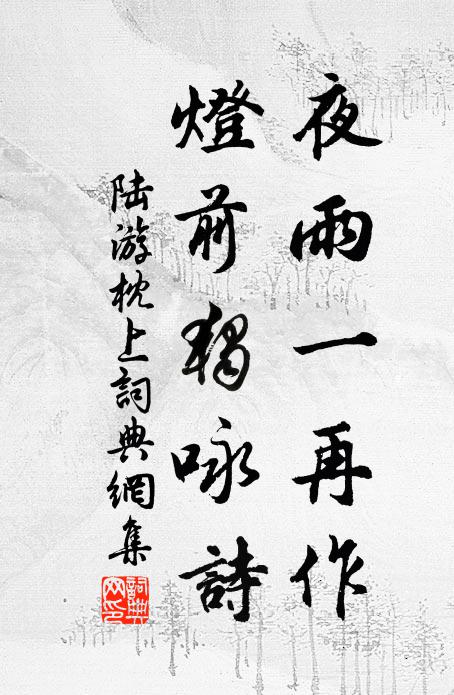 夜雨一再作
燈前獨咏詩
陆游枕上詞典網集
詞典